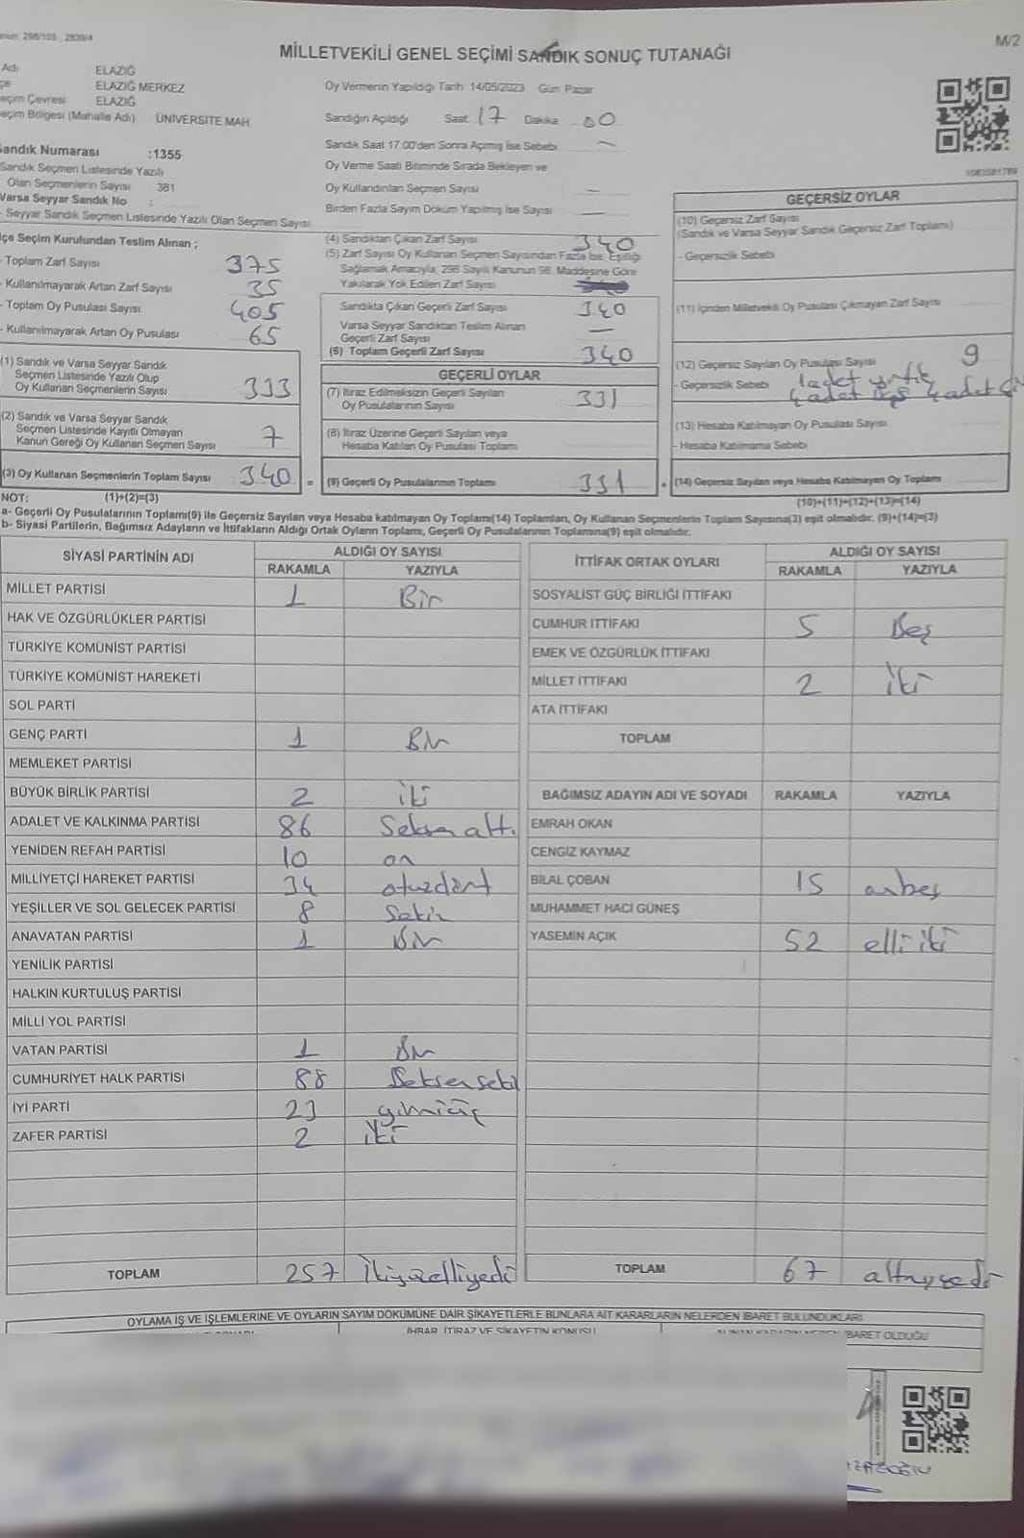 M/2
MİLLETVEKİLİ GENEL SEÇİMİ SANDIK SONUÇ TUTANAĞI
ELAZIĞ
ELAZIĞ MERKEZ
eçim Çevresi ELAZIĞ
eçim Bölgesi (Mahalle Adı) ÜNİVERSİTE MAH.
andık Numarası :1355
Sandık Seçmen Listesinde Yazılı
Olan Seçmenlerin Sayısı 381
Varsa Seyyar Sandık No :
Seyyar Sandık Seçmen Listesinde Yazılı Olan Seçmen Sayısı
Oy Vermenin Yapıldığı Tarih 14/05/2023 Gün Pazar
Sandığın Açıldığı Saat 17 Dakika 00
Sandık Saat 17.00'den Sonra Açılmış İse Sebebi —
Oy Verme Saati Bitiminde Sırada Bekleyen ve
Oy Kullandırılan Seçmen Sayısı —
Birden Fazla Sayım Döküm Yapılmış İse Sayısı —
lçe Seçim Kurulundan Teslim Alınan ;
- Toplam Zarf Sayısı 375
- Kullanılmayarak Artan Zarf Sayısı 35
- Toplam Oy Pusulası Sayısı 405
- Kullanılmayarak Artan Oy Pusulası 65
(1) Sandık ve Varsa Seyyar Sandık
Seçmen Listesinde Yazılı Olup
Oy Kullanan Seçmenlerin Sayısı 333
(2) Sandık ve Varsa Seyyar Sandık
Seçmen Listesinde Kayıtlı Olmayan
Kanun Gereği Oy Kullanan Seçmen Sayısı 7
(3) Oy Kullanan Seçmenlerin Toplam Sayısı 340
(4) Sandıktan Çıkan Zarf Sayısı 340
(5) Zarf Sayısı Oy Kullanan Seçmen Sayısından Fazla İse, Eşitliği
Sağlamak Amacıyla, 298 Sayılı Kanunun 98. Maddesine Göre
Yakılarak Yok Edilen Zarf Sayısı
Sandıkta Çıkan Geçerli Zarf Sayısı 340
Varsa Seyyar Sandıktan Teslim Alınan
Geçerli Zarf Sayısı —
(6) Toplam Geçerli Zarf Sayısı 340
GEÇERLİ OYLAR
(7) İtiraz Edilmeksizin Geçerli Sayılan
Oy Pusulalarının Sayısı 331
(8) İtiraz Üzerine Geçerli Sayılan veya
Hesaba Katılan Oy Pusulası Toplamı
(9) Geçerli Oy Pusulalarının Toplamı 331
GEÇERSİZ OYLAR
(10) Geçersiz Zarf Sayısı
(Sandık ve Varsa Seyyar Sandık Geçersiz Zarf Toplamı)
- Geçersizlik Sebebi
(11) İçinden Milletvekili Oy Pusulası Çıkmayan Zarf Sayısı
(12) Geçersiz Sayılan Oy Pusulası Sayısı 9
- Geçersizlik Sebebi 1 adet yırtık
4 adet boş 4 adet
(13) Hesaba Katılmayan Oy Pusulası Sayısı
- Hesaba Katılmama Sebebi
(14) Geçersiz Sayılan veya Hesaba Katılmayan Oy Toplamı
NOT: (1)+(2)=(3) (10)+(11)+(12)+(13)=(14)
a- Geçerli Oy Pusulalarının Toplamı(9) ile Geçersiz Sayılan veya Hesaba katılmayan Oy Toplamı(14) Toplamları, Oy Kullanan Seçmenlerin Toplam Sayısına(3) eşit olmalıdır. (9)+(14)=(3)
b- Siyasi Partilerin, Bağımsız Adayların ve İttifakların Aldığı Ortak Oyların Toplamı, Geçerli Oy Pusulalarının Toplamına(9) eşit olmalıdır.
SİYASİ PARTİNİN ADI ALDIĞI OY SAYISI
RAKAMLA YAZIYLA
MİLLET PARTİSİ 1 Bir
HAK VE ÖZGÜRLÜKLER PARTİSİ
TÜRKİYE KOMÜNİST PARTİSİ
TÜRKİYE KOMÜNİST HAREKETİ
SOL PARTİ
GENÇ PARTİ 1 Bir
MEMLEKET PARTİSİ
BÜYÜK BİRLİK PARTİSİ 2 iki
ADALET VE KALKINMA PARTİSİ 86 Seksen altı
YENİDEN REFAH PARTİSİ 10 on
MİLLİYETÇİ HAREKET PARTİSİ 34 otuzdört
YEŞİLLER VE SOL GELECEK PARTİSİ 8 Sekiz
ANAVATAN PARTİSİ 1 Bir
YENİLİK PARTİSİ
HALKIN KURTULUŞ PARTİSİ
MİLLİ YOL PARTİSİ
VATAN PARTİSİ 1 Bir
CUMHURİYET HALK PARTİSİ 88 Seksensekiz
İYİ PARTİ 23 yirmiüç
ZAFER PARTİSİ 2 iki
TOPLAM 257 ikiyüzelliyedi
İTTİFAK ORTAK OYLARI ALDIĞI OY SAYISI
RAKAMLA YAZIYLA
SOSYALİST GÜÇ BİRLİĞİ İTTİFAKI
CUMHUR İTTİFAKI 5 Beş
EMEK VE ÖZGÜRLÜK İTTİFAKI
MİLLET İTTİFAKI 2 iki
ATA İTTİFAKI
TOPLAM
BAĞIMSIZ ADAYIN ADI VE SOYADI RAKAMLA YAZIYLA
EMRAH OKAN
CENGİZ KAYMAZ
BİLAL ÇOBAN 15 onbeş
MUHAMMET HACI GÜNEŞ
YASEMİN AÇIK 52 elli iki
TOPLAM 67 altmışyedi
OYLAMA İŞ VE İŞLEMLERİNE VE OYLARIN SAYIM DÖKÜMÜNE DAİR ŞİKAYETLERLE BUNLARA AİT KARARLARIN NELERDEN İBARET BULUNDUKLARI
İHBAR, İTİRAZ VE ŞİKAYETİN KONUSU
İBARET OLDUĞU